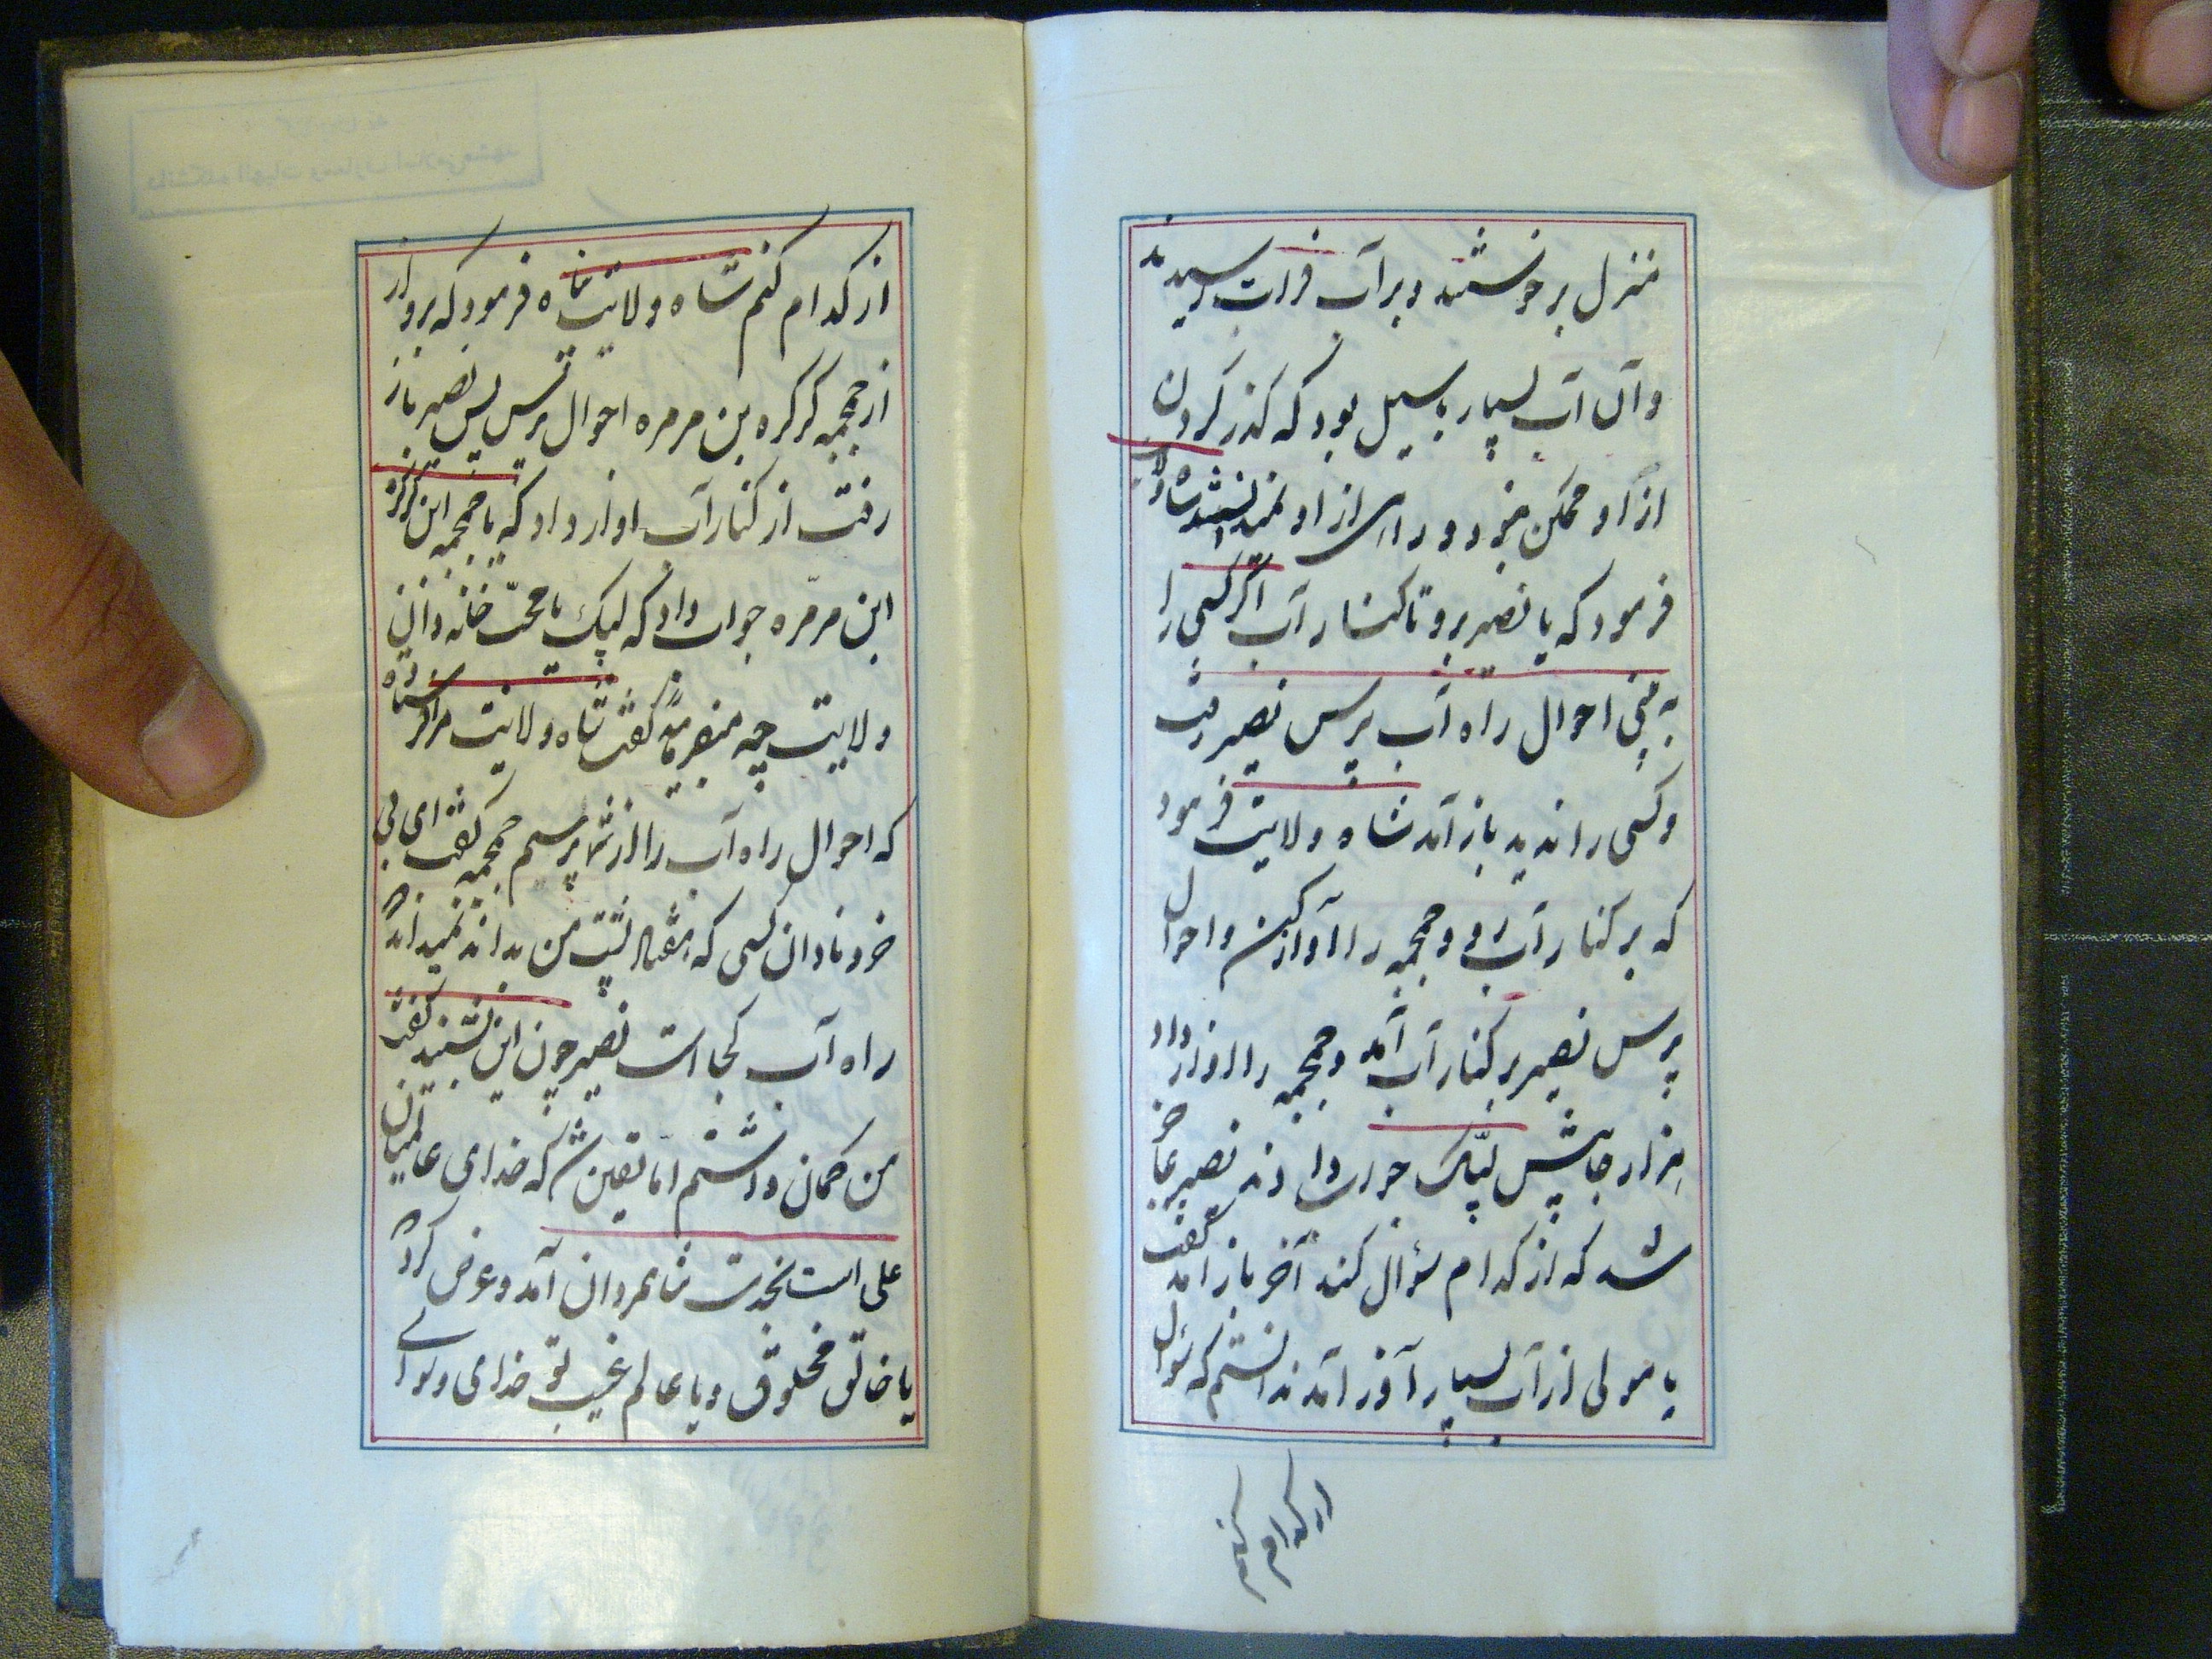 منزل برخوستند و بر آب فرات رسیدند
و آن آب بسیار سیل بود که گذر کردن
از او ممکن نبود و راهی از او نمیدانستند شاه ولایت
فرمود که یا نصیر برو تا کنار آب اگر کسی را
به بینی احوال راه آب پرس نصیر رفت
و کسی را ندید باز آمد شاه ولایت فرمود
که بر کنار آب رو و جمجمه را آواز کن و احوال
پرس نصیر بر کنار آب آمد و جمجمه را اواز داد
هزار جا پیش لبیک جواب دادند نصیر عاجز
شد که از کدام سؤال کند آخر باز آمد گفت
یا مولی از آب بسیار آواز آمد ندانستم که سؤال
از کدام کنم
از کدام کنم شاه ولایت پناه فرمود که برو از
از جمجمه کرکره بن مرمره احوال پرس پس نصیر باز
رفت از کنار آب اواز داد که یا جمجمه ابن کرکره
ابن مرمره جواب داد که لبیک یا محب خانه دان
ولایت چه میفرمائید گفت شاه ولایت مرا فرستاده
که احوال راه آب را از شما پرسم جمجمه گفت ای بی
خرد نادان کسی که هفتاد پشت من بداند نمیداند که
راه آب کجا است نصیر چون این بشنید گفت
من گمان داشتم اما یقین شد که خدای عالمیان
علی است بخدمت شاه مردان آمد و عرض کرد که
یا خالق مخلوق و یا عالم غیب تو خدای و سوای